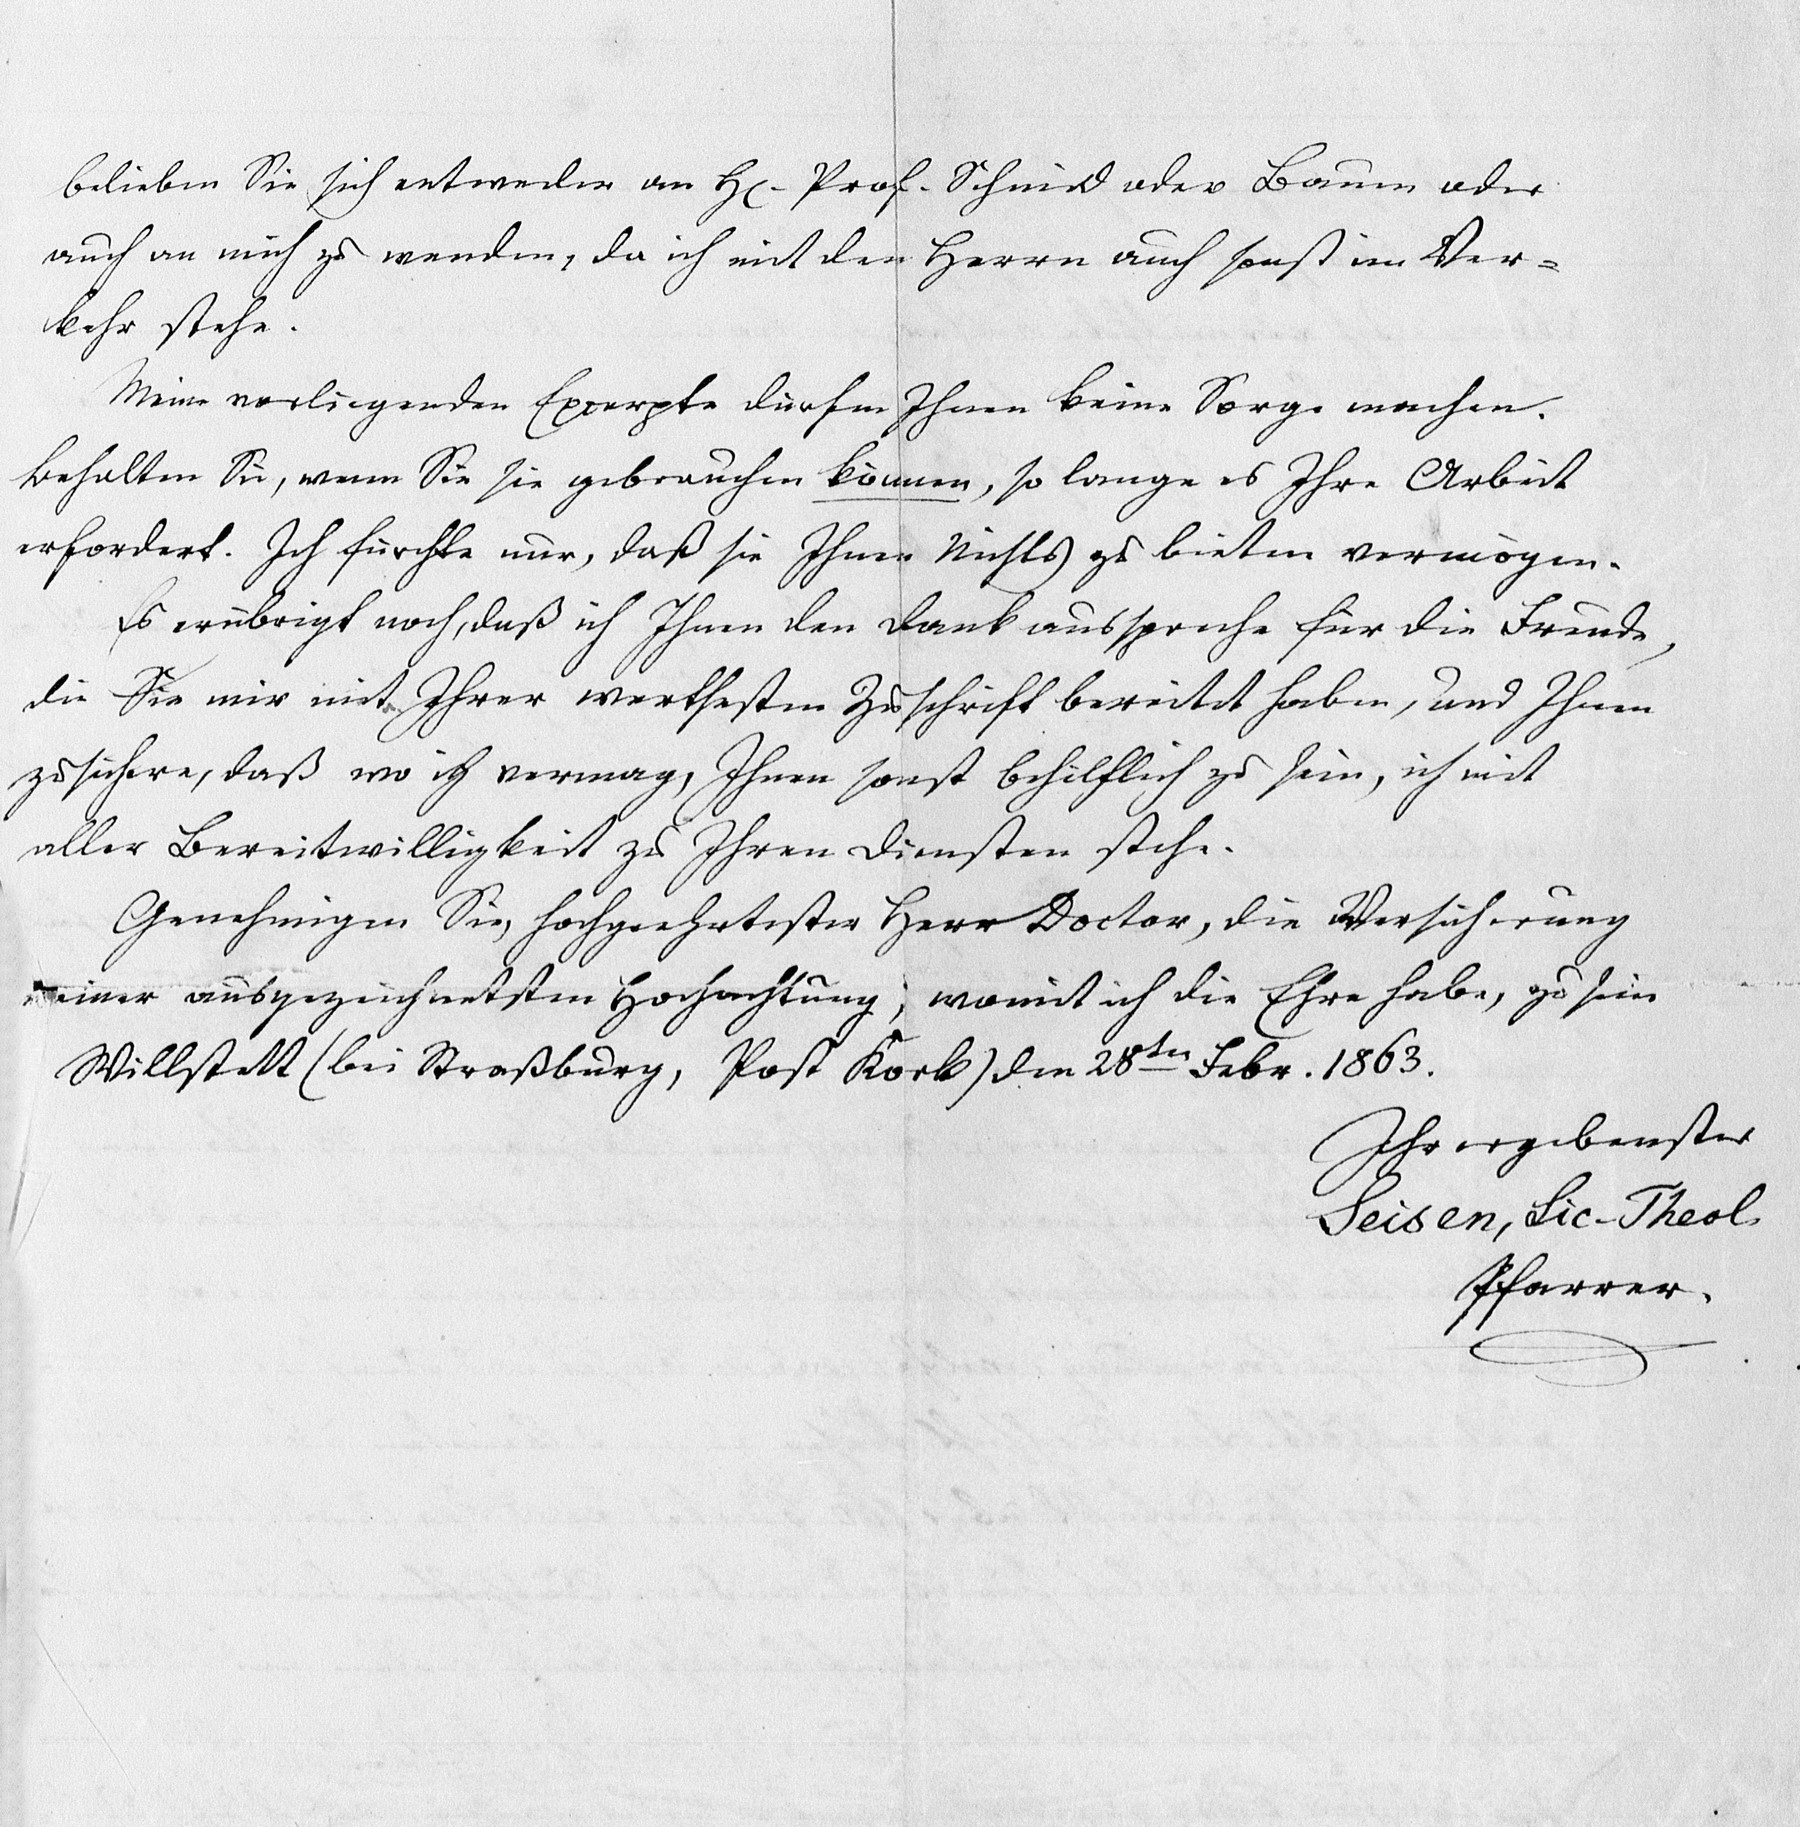 belieben Sie sich entweder an H. Prof. Schmid oder Baum oder
auch an mich zu wenden, da ich mit den Herrn auch sonst im Ver=
kehr stehe.
Meine vorliegenden Excerpte dürfen Ihnen keine Sorge machen.
Behalten Sie, wenn Sie sie gebrauchen können, so lange es Ihre Arbeit
erfordert. Ich fürchte nur, daß sie Ihnen Nichts zu bieten vermögen.
Es erübrigt noch, daß ich Ihnen den Dank ausspreche für die Freude,
die Sie mir mit Ihrer werthesten Zuschrift bereitet haben, und Ihnen
zusichere, daß wo ich vermag, Ihnen sonst behilflich zu sein, ich mit
aller Bereitwilligkeit zu Ihren Diensten stehe.
Genehmigen Sie, hochgeehrtester Herr Doctor, die Versicherung
meiner ausgezeichnetsten Hochachtung, womit ich die Ehre habe, zu sein
Willstett (bei Straßburg, Post Kork) den 28ten Febr. 1863.
Ihr ergebenster
Seisen, Lic. Theol.
Pfarrer.